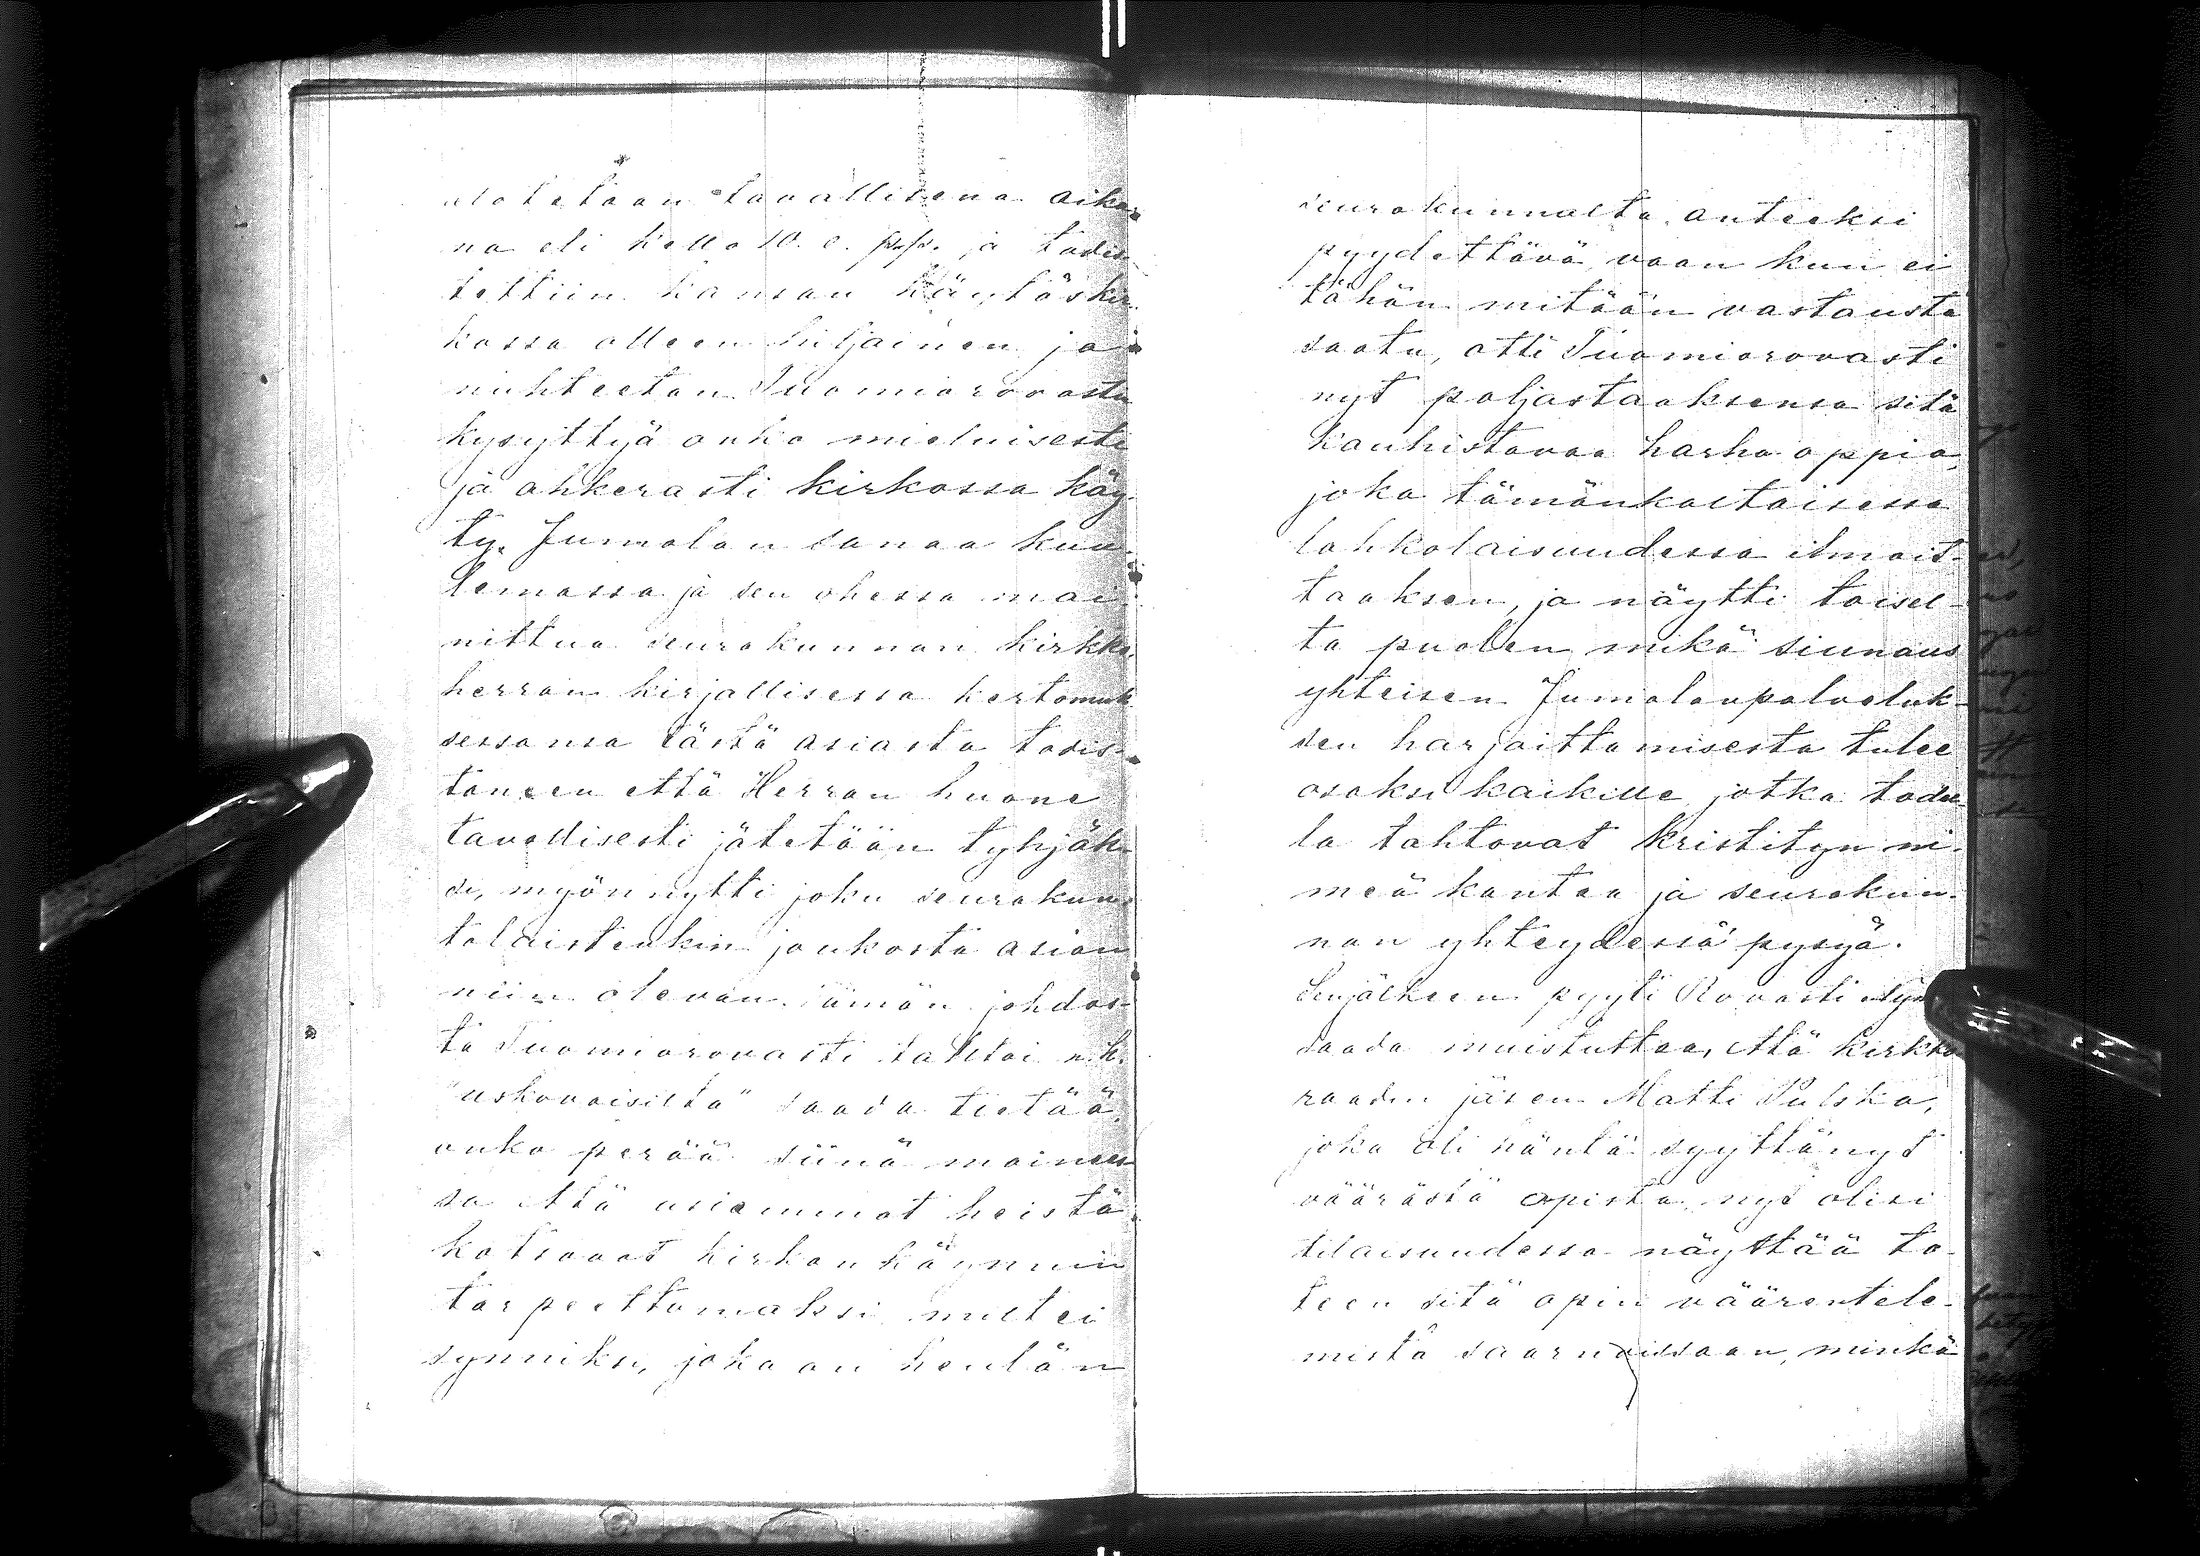 alotetaan tavallisena aika-
na eli kello 10. e. p.p. ja todis-
tettiin kansan käytös kir-
kossa olleen hiljainen ja
nuhteeton. Tuomiorovastin
kysyttyä onko mieluisesti
ja ahkerasti kirkossa käy-
ty Jumalan sanaa kuu-
lemassa ja sen ohessa mai-
nittua seurakunnan kirkko-
herran kirjallisessa kertomuk-
sessansa tästä asiasta todis-
taneen että Herran huone
tavallisesti jätetään tyhjäk-
si, myönnytti joku seurakun-
talaistenkin joukosta asian
niin olevan. Tämän johdos-
ta Tuomiorovasti tahtoi n.k.
"uskovaisilta" saada tietää
onko perää siinä mainees-
sa että useammat heistä
katsovat kirkon käynnin
tarpeettomaksi mutt ei
synniksi, joka on heidän
seurakunnalta anteeksi
pyydettävä, vaan kun ei
tähän mitään vastausta
saatu, otti Tuomiorovasti
nyt paljastaaksensa sitä
kauhistavaa harhaoppia,
joka tämänkaltaisessa
lahkolaisuudessa ilmoit-
taaksen, ja näytti toisel-
ta puolen mikä siunaus
yhteisen Jumalanpalveluk-
sen harjoittamisesta tulee
osaksi kaikille jotka todel-
la tahtovat kristityn ni-
meä kantaa ja seurakun-
nan yhteydessä pysyä.
Senjälkeen pyyti Rovasti
saada muistuttaa, että kirkko
raadin jäsen Matti Pulska,
joka oli häntä syyttänyt
väärästä opista, nyt olisi
tilaisuudessa näyttää to-
teen sitä opin väärentele-
mistä saarnoissaan, minkä